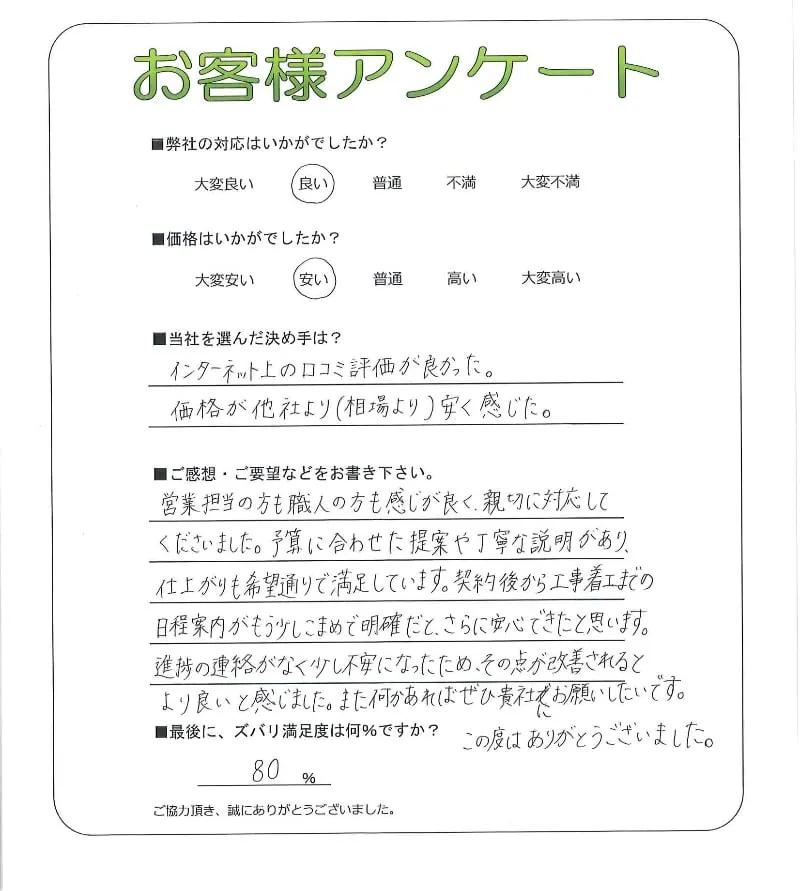 お客様アンケート
■弊社の対応はいかがでしたか？
大変良い 良い 普通 不満 大変不満
■価格はいかがでしたか？
大変安い 安い 普通 高い 大変高い
■当社を選んだ決め手は？
インターネット上の口コミ評価が良かった。
価格が他社より(相場より)安く感じた。
■ご感想・ご要望などをお書き下さい。
営業担当の方も職人の方も感じが良く、親切に対応して
くださいました。予算に合わせた提案や丁寧な説明があり、
仕上がりも希望通りで満足しています。契約後から工事着工までの
日程案内がもう少しこまめで明確だと、さらに安心できたと思います。
進捗の連絡がなく少し不安になったため、その点が改善されると
より良いと感じました。また何かあればぜひ貴社にお願いしたいです。
この度はありがとうございました。
■最後に、ズバリ満足度は何%ですか？
80 %
ご協力頂き、誠にありがとうございました。